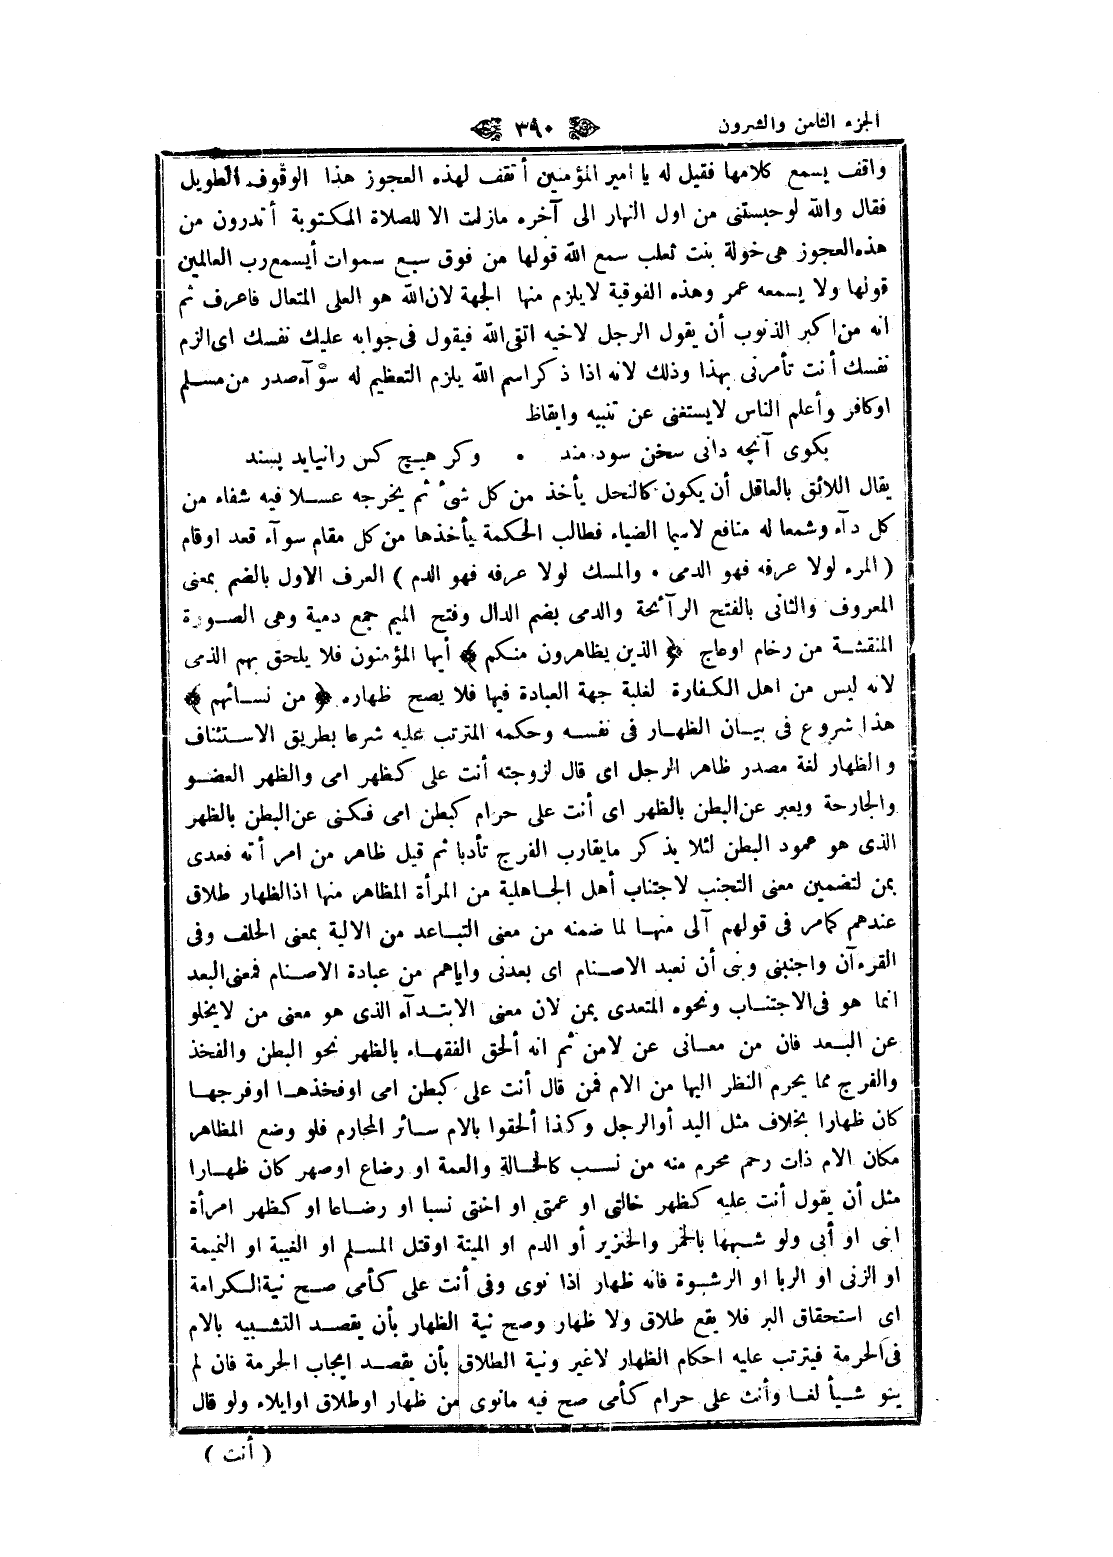 الجزء الثامن والعشرون
٣٩٠
واقف يسمع كلامها فقيل له يا امير المؤمنين أتقف لهذه العجوز هذا الوقوف الطويل
فقال والله لو حبستنى من اول النهار الى آخره مازلت الا للصلاة المكتوبة أتدرون من
هذه العجوز هى خولة بنت ثعلب سمع الله قولها من فوق سبع سموات أيسمع رب العالمين
قولها ولا يسمعه عمر وهذه الفوقية لا يلزم منها الجهة لان الله هو العلى المتعال فاعرف ثم
انه من اكبر الذنوب أن يقول الرجل لاخيه اتقى الله فيقول فى جوابه عليك نفسك اى الزم
نفسك أنت تأمرنى بهذا وذلك لانه اذا ذكر اسم الله يلزم التعظيم له سوآء صدر من مسلم
او كافر وأعلم الناس لا يستغنى عن تنبيه وايقاظ
بكوى آنچه دانى سخن سودمند • وكر هيچ كس رانيايد پسند
يقال اللائق بالعاقل أن يكون كالنحل يأخذ من كل شئ ثم يخرجه عسلا فيه شفاء من
كل دآء وشمعا له منافع لا سيما الضياء فطالب الحكمة يأخذها من كل مقام سوآء قعد اوقام
( المرء لولا عرفه فهو الدمى • والمسك لولا عرفه فهو الدم ) العرف الاول بالضم بمعنى
المعروف والثانى بالفتح الرآئحة والدمى بضم الدال وفتح الميم جمع دمية وهى الصورة
المنقشة من رخام او عاج ﴿ الذين يظاهرون منكم ﴾ أيها المؤمنون فلا يلحق بهم الذمى
لانه ليس من اهل الكفارة لغلبة جهة العبادة فيها فلا يصح ظهاره ﴿ من نسائهم ﴾
هذا شروع فى بيان الظهار فى نفسه وحكمه المترتب عليه شرعا بطريق الاستئناف
والظهار لغة مصدر ظاهر الرجل اى قال لزوجته أنت على كظهر امى والظهر العضو
والجارحة ويعبر عن البطن بالظهر اى أنت على حرام كبطن امى فكنى عن البطن بالظهر
الذى هو عمود البطن لئلا يذكر مايقارب الفرج تأدبا ثم قيل ظاهر من امرأته فعدى
بمن لتضمين معنى التجنب لاجتناب أهل الجاهلية من المرأة المظاهر منها اذ الظهار طلاق
عندهم كمامر فى قولهم آلى منها لما ضمنه من معنى التباعد من الالية بمعنى الحلف وفى
القرءآن واجنبنى وبنى أن نعبد الاصنام اى بعدنى واياهم من عبادة الاصنام فمعنى البعد
انما هو فى الاجتناب ونحوه المتعدى بمن لان معنى الابتدآء الذى هو معنى من لايخلو
عن البعد فان من معانى عن لامن ثم انه ألحق الفقهاء بالظهر نحو البطن والفخذ
والفرج مما يحرم النظر اليها من الام فمن قال أنت على كبطن امى اوفخذها اوفرجها
كان ظهارا بخلاف مثل اليد أو الرجل وكذا ألحقوا بالام سائر المحارم فلو وضع المظاهر
مكان الام ذات رحم محرم منه من نسب كالخالة والعمة او رضاع اوصهر كان ظهارا
مثل أن يقول أنت عليه كظهر خالتى او عمتى او اختى نسبا او رضاعا او كظهر امرأة
ابنى او أبى ولو شبهها بالخمر والخنزير أو الدم او الميتة اوقتل المسلم او الغيبة او النميمة
او الزنى او الربا او الرشوة فانه ظهار اذا نوى وفى أنت على كأمى صح نية الكرامة
اى استحقاق البر فلا يقع طلاق ولا ظهار وصح نية الظهار بأن يقصد التشبيه بالام
فى الحرمة فيترتب عليه احكام الظهار لاغير ونية الطلاق بأن يقصد ايجاب الحرمة فان لم
ينو شيأ لغا وأنت على حرام كأمى صح فيه مانوى من ظهار اوطلاق اوايلاء ولو قال
( أنت )